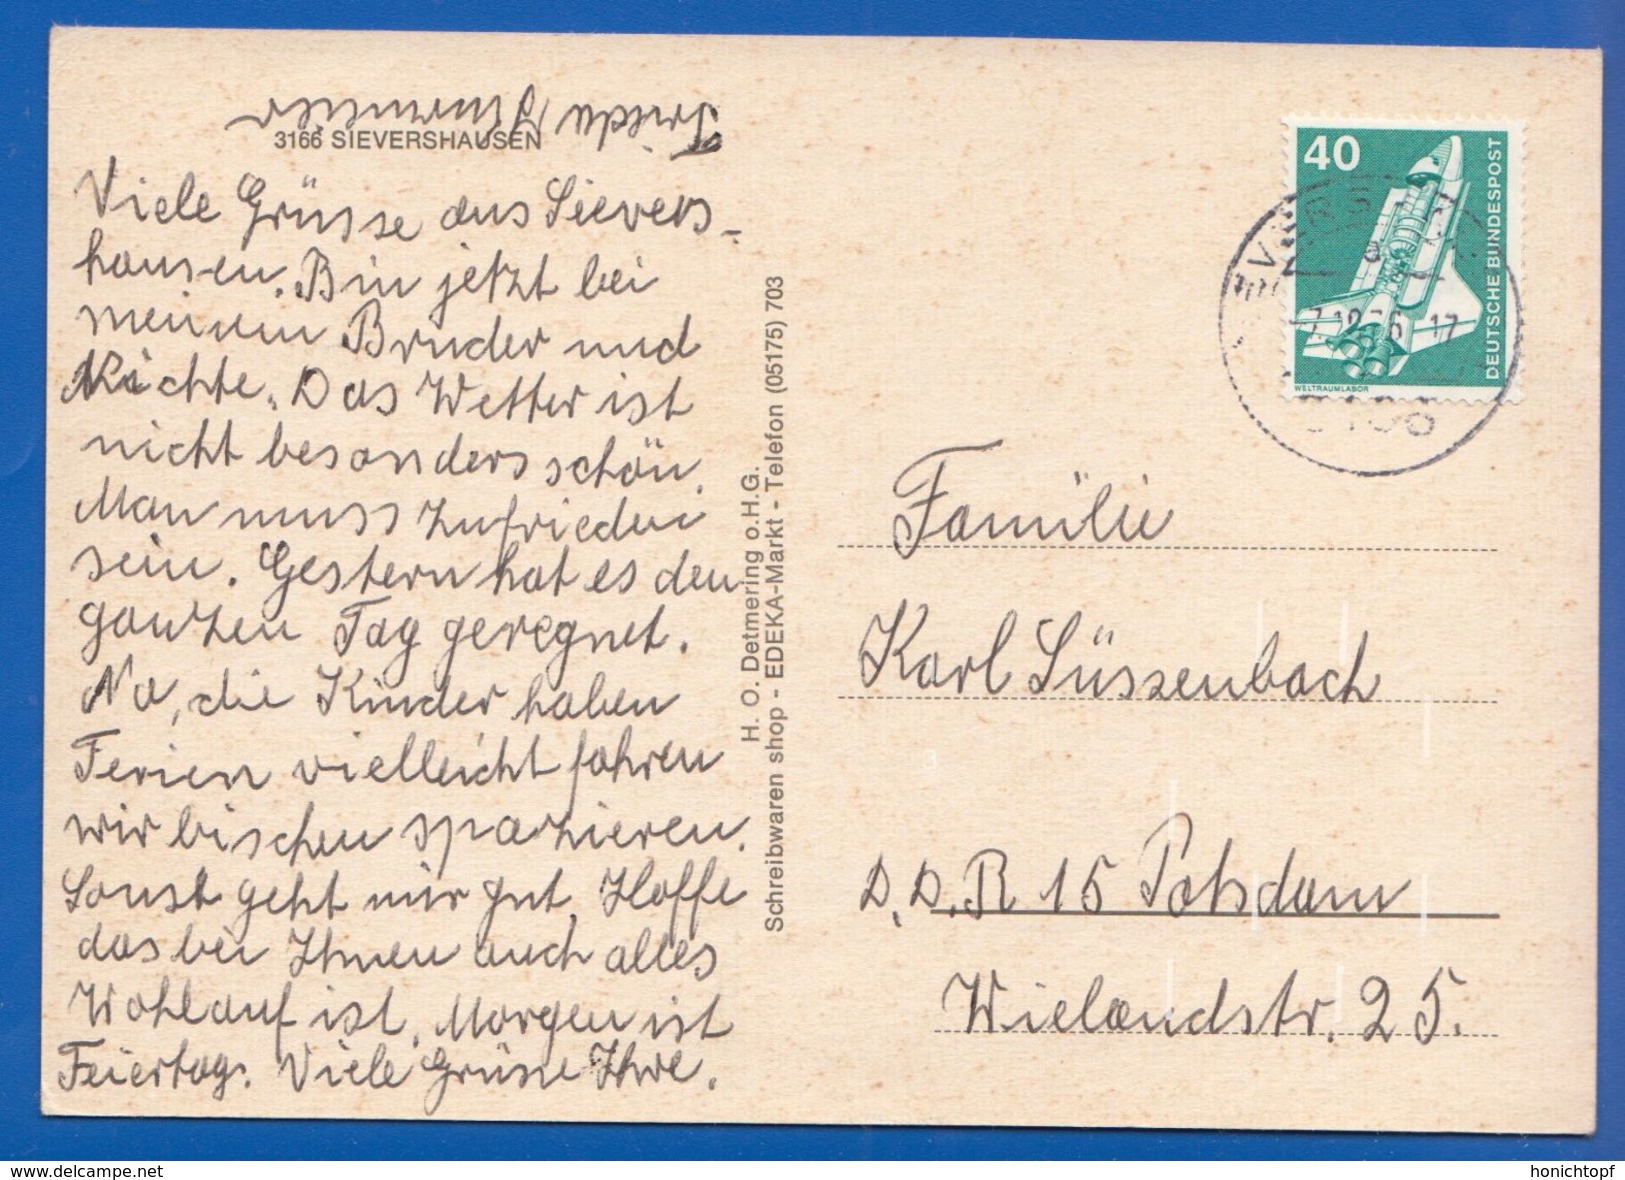 3166 SIEVERSHAUSEN
Viele Grüsse aus Sievers-
hausen. Bin jetzt bei
meinem Bruder und
Nichte. Das Wetter ist
nicht besonders schön.
Man muss zufrieden
sein. Gestern hat es den
ganzen Tag geregnet.
Na, die Kinder haben
Ferien vielleicht fahren
wir bischen spazieren.
Sonst geht mir gut. Hoffe
das bei Ihnen auch alles
Wohlauf ist. Morgen ist
Feiertag. Viele Grüsse Ihre.
H. O. Detmering o.H.G.
Schreibwaren shop - EDEKA-Markt - Telefon (05175) 703
40
DEUTSCHE BUNDESPOST
WELTRAUMLABOR
Familie
Karl Süssenbach
D.D.R 15 Potsdam
Wielandstr. 25.
delcampe.net
honichtopf